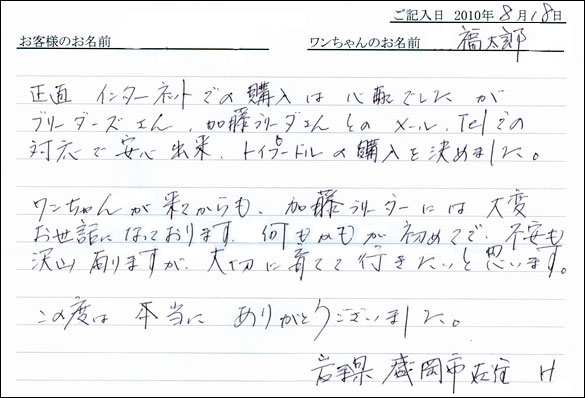 ご記入日 2010年 8月18日
お客様のお名前 ワンちゃんのお名前 福太郎
正直 インターネットでの購入は心配でしたが
ブリーダーズさん、加藤ブリーダーさんとのメール、Telでの
対応で安心出来、トイプードルの購入を決めました。
ワンちゃんが来てからも、加藤ブリーダーには大変
お世話になっております。何もかもが初めてで、不安も
沢山有りますが、大切に育てて行きたいと思います。
この度は本当にありがとうございました。
岩手県 盛岡市在住 H